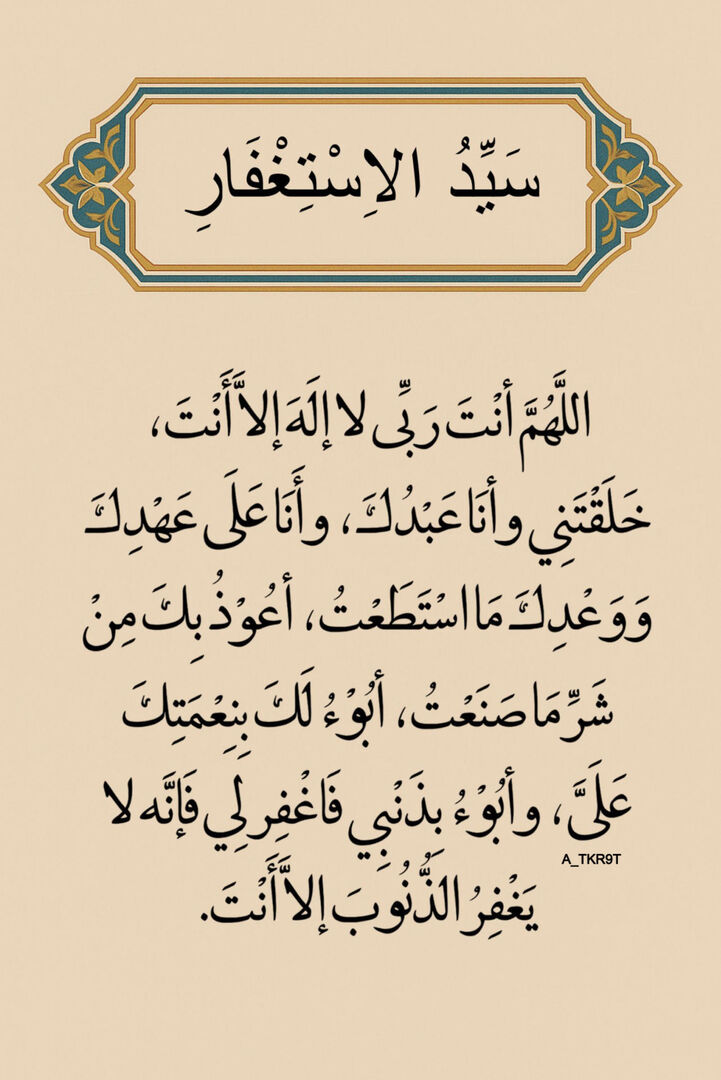 سَيِّدُ الاِسْتِغْفَارِ
اللَّهُمَّ أنْتَ رَبِّى لا إلَهَ إلاَّ أَنْتَ،
خَلَقْتَنِي وأنَا عَبْدُكَ، وأَنَا عَلَى عَهْدِكَ
وَوَعْدِكَ مَا اسْتَطَعْتُ، أعُوْذُ بِكَ مِنْ
شَرِّ مَا صَنَعْتُ، أبُوْءُ لَكَ بِنِعْمَتِكَ
عَلَىَّ، وأبُوْءُ بِذَنْبِي فَاغْفِر لِي فَإنَّه لا
A_TKR9T
يَغْفِرُ الذُّنُوبَ إلاَّ أَنْتَ.